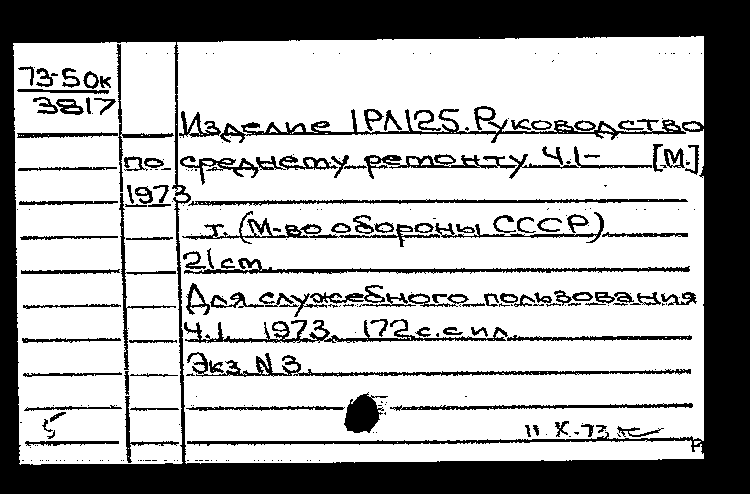 73-50к
3817
Изделие 1РЛ125. Руководство
по среднему ремонту. Ч.1- [М.],
1973
т. (М-во обороны СССР)
21см.
Для служебного пользования
Ч.1. 1973. 172с. с ил.
Экз. N 3.
5
11 X-73